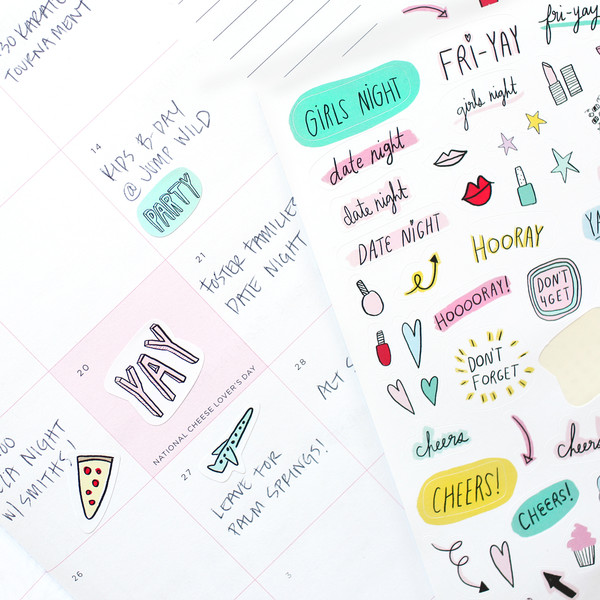 30 KARATE
TOURNAMENT
14
KIDS B-DAY
@ JUMP WILD
PARTY
21
FOSTER FAMILIES
DATE NIGHT
20
YAY
NATIONAL CHEESE LOVER'S DAY
28
NIGHT
W/ SMITHS!
27
LEAVE FOR
PALM SPRINGS!
26
3
FRI-YAY
fri-yay
GIRLS NIGHT
girls night
date night
date night
DATE NIGHT
HOORAY
HOOOORAY!
DON'T
4GET
DON'T
FORGET
cheers
cheers
CHEERS!
CHEERS!